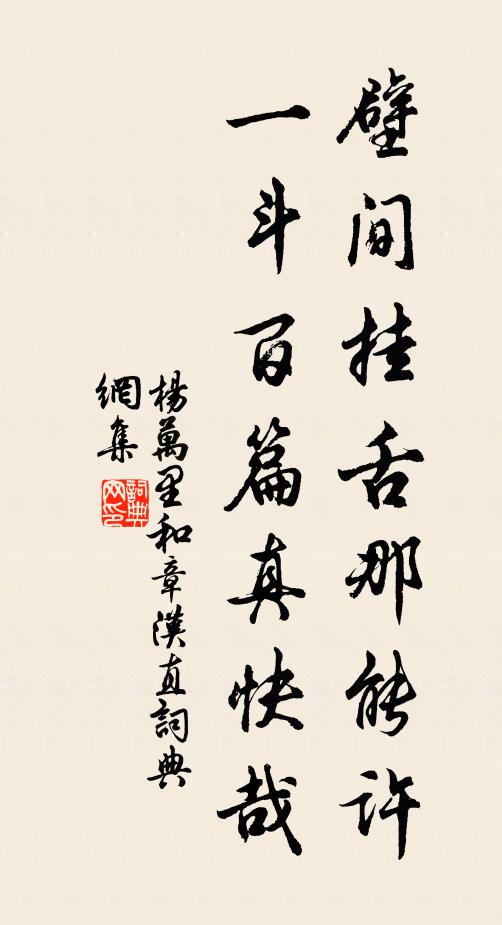 壁间挂舌那能许
一斗百篇真快哉
楊萬里和章漢直詞典
網集
詞典
网印